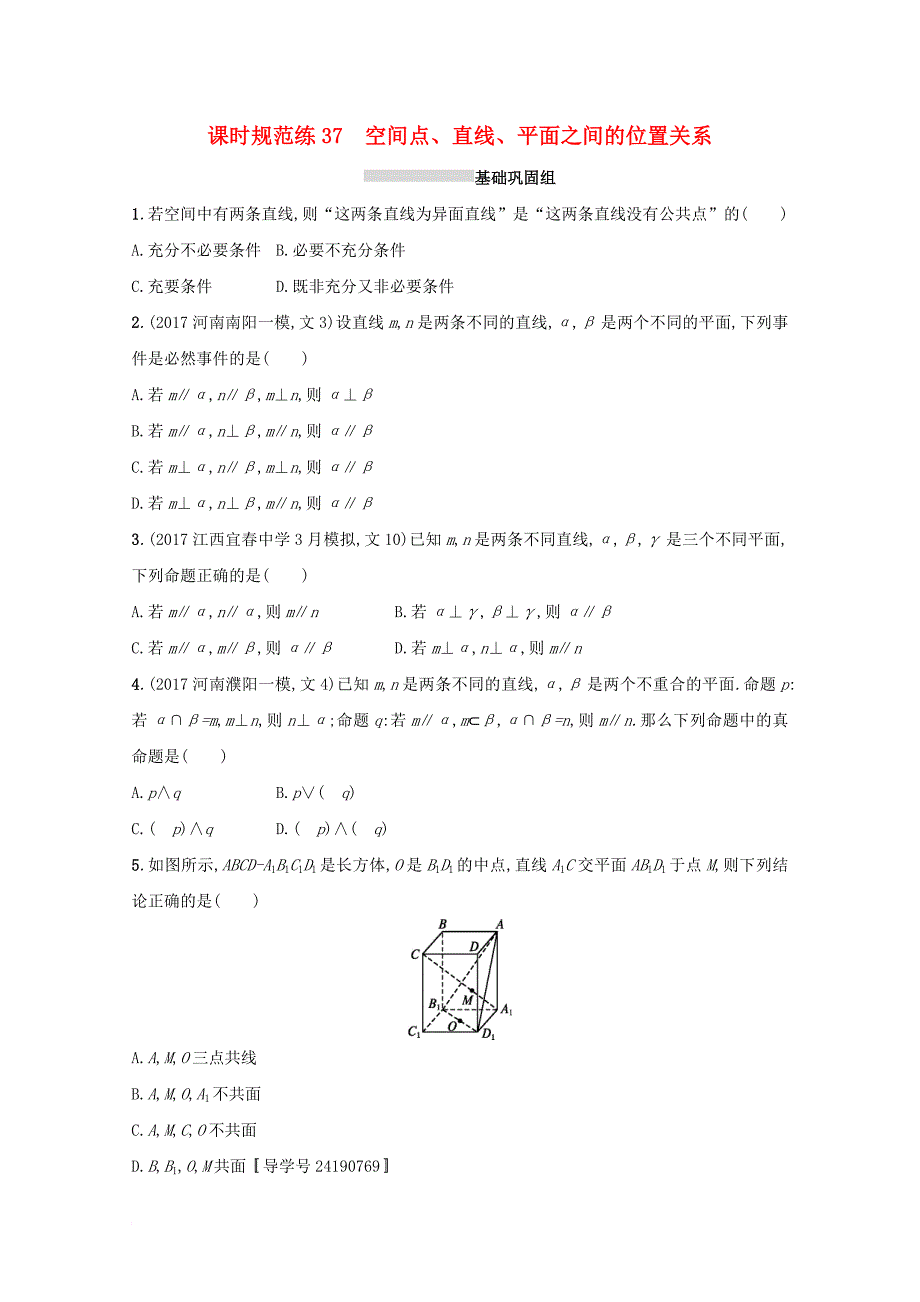 课时规范练37 空间点、直线、平面之间的位置关系
基础巩固组
1.若空间中有两条直线,则“这两条直线为异面直线”是“这两条直线没有公共点”的(  )
A.充分不必要条件 B.必要不充分条件
C.充要条件 D.既非充分又非必要条件
2.(2017河南南阳一模,文3)设直线m,n是两条不同的直线,α,β是两个不同的平面,下列事
件是必然事件的是(  )
A.若m∥α,n∥β,m⊥n,则α⊥β
B.若m∥α,n⊥β,m∥n,则α∥β
C.若m⊥α,n∥β,m⊥n,则α∥β
D.若m⊥α,n⊥β,m∥n,则α∥β
3.(2017江西宜春中学3月模拟,文10)已知m,n是两条不同直线,α,β,γ是三个不同平面,
下列命题正确的是(  )
A.若m∥α,n∥α,则m∥n B.若α⊥γ,β⊥γ,则α∥β
C.若m∥α,m∥β,则α∥β D.若m⊥α,n⊥α,则m∥n
4.(2017河南濮阳一模,文4)已知m,n是两条不同的直线,α,β是两个不重合的平面.命题p:
若α∩β=m,m⊥n,则n⊥α;命题q:若m∥α,m⊂β,α∩β=n,则m∥n.那么下列命题中的真
命题是(  )
A.p∧q B.p∨( q)
C.( p)∧q D.( p)∧( q)
5.如图所示,ABCD-A₁B₁C₁D₁是长方体,O是B₁D₁的中点,直线A₁C交平面AB₁D₁于点M,则下列结
论正确的是(  )
B A
C D
B₁ M A₁
C₁ O D₁
A.A,M,O三点共线
B.A,M,O,A₁不共面
C.A,M,C,O不共面
D.B,B₁,O,M共面〚导学号24190769〛